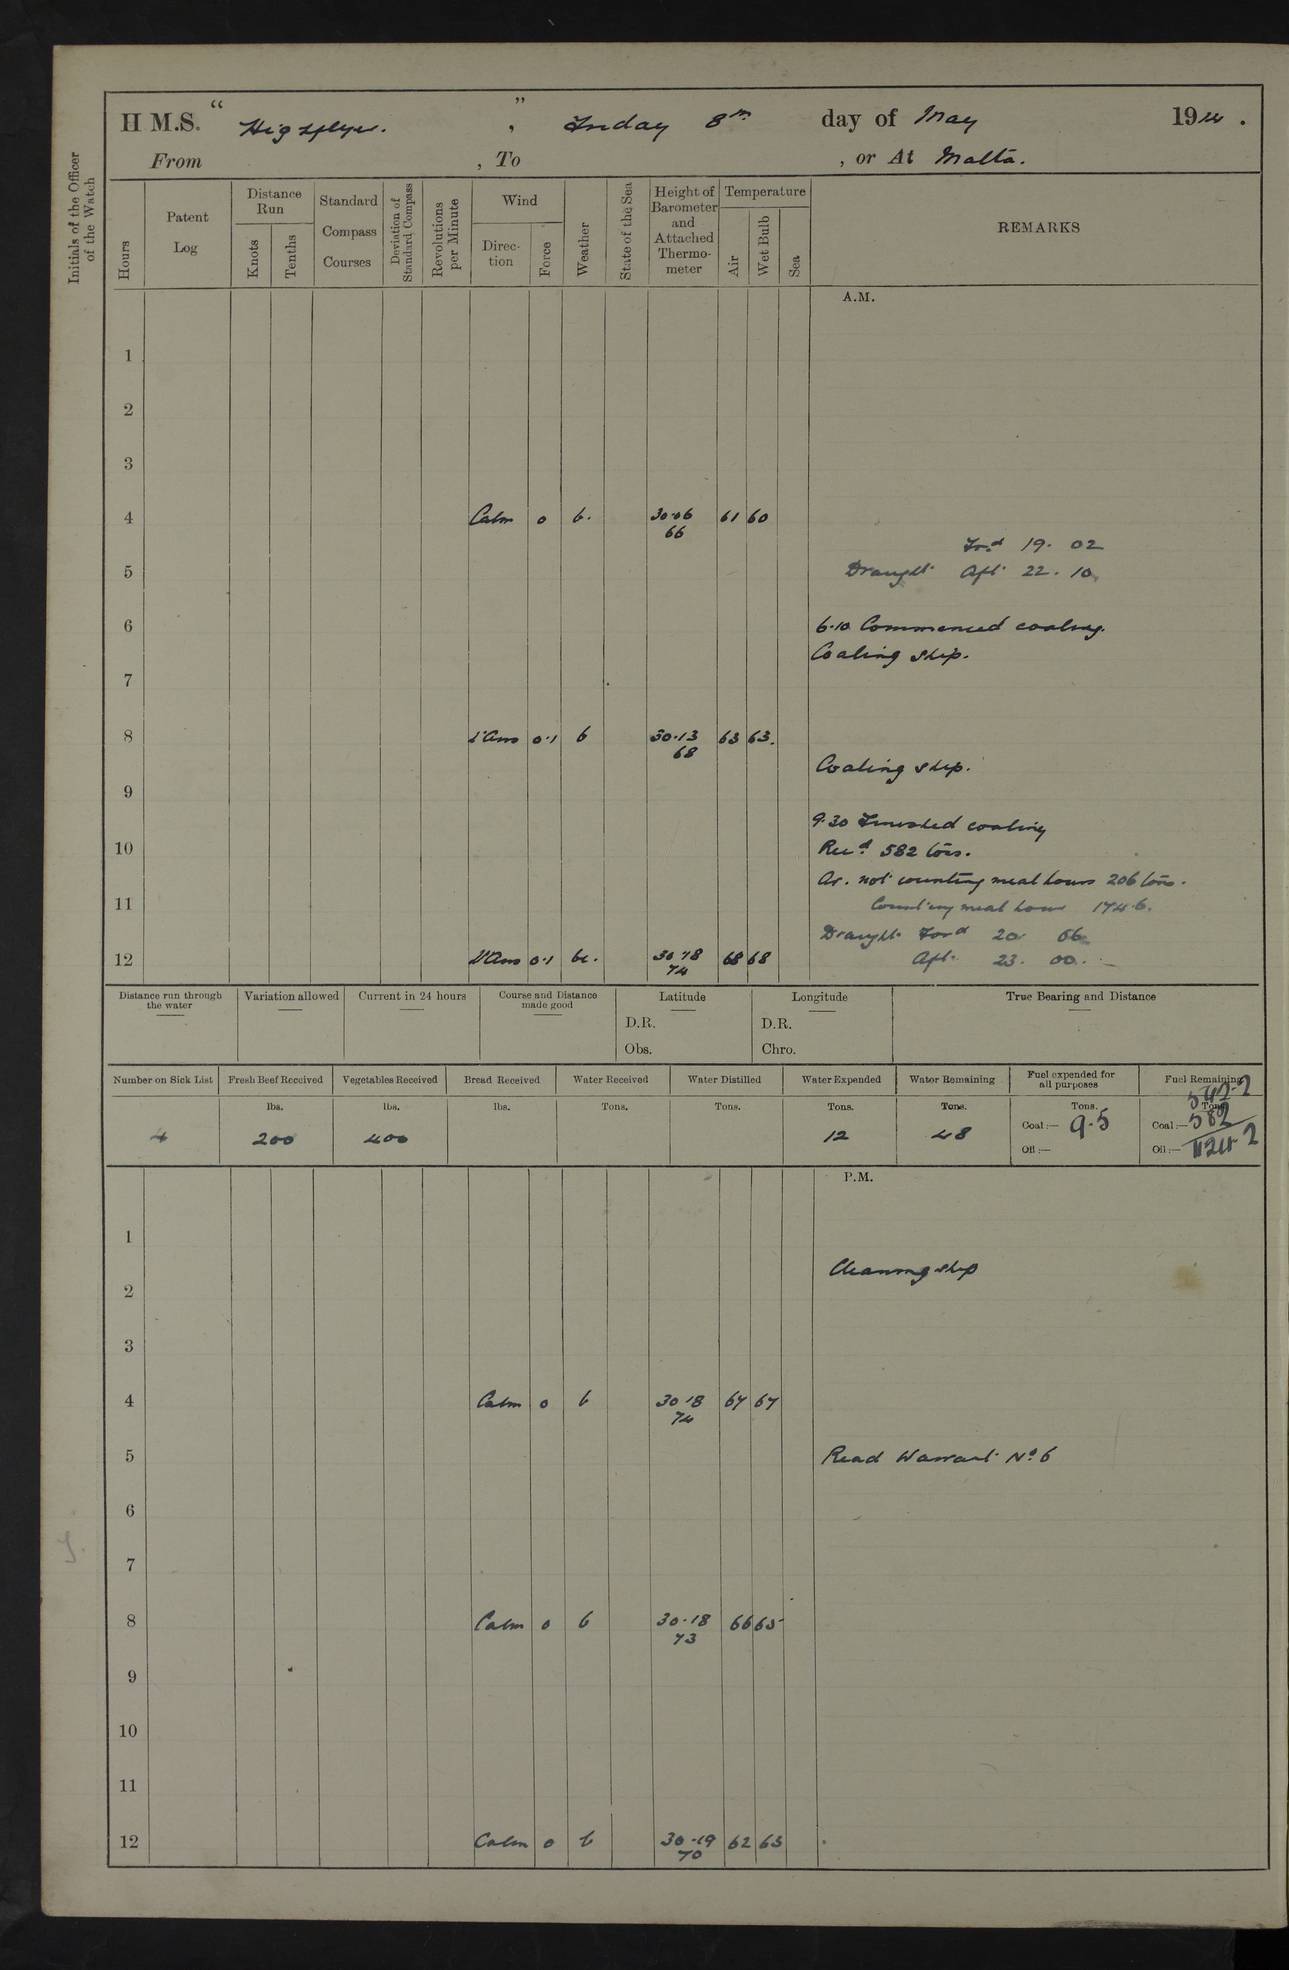 H M.S. “ Highflyer. ” , Friday 8th day of May 1914 .
From , To , or At Malta.
Initials of the Officer of the Watch
Hours
Patent Log
Distance Run
Knots
Tenths
Standard Compass Courses
Deviation of Standard Compass
Revolutions per Minute
Wind
Direc-tion
Force
Weather
State of the Sea
Height of Barometer and Attached Thermo-meter
Temperature
Air
Wet Bulb
Sea
REMARKS
A.M.
1
2
3
4 Calm 0 b. 30.06 61 60
66
Ford 19. 02
5 Draught Aft 22. 10
6 6.10 Commenced coaling.
Coaling ship.
7
8 V'Airs 0.1 b 30.13 63 63.
68
Coaling ship.
9
9.30 Finished coaling
10 Recd 582 tons.
Av. not counting meal hours 206 tons.
11 Counting meal hours 174.6.
Draught Ford 20 06
12 V'Airs 0.1 bc. 30 18 68 68 Aft. 23. 00.
74
Distance run through the water
Variation allowed
Current in 24 hours
Course and Distance made good
Latitude
D.R.
Obs.
Longitude
D.R.
Chro.
True Bearing and Distance
Number on Sick List
4
Fresh Beef Received
lbs.
200
Vegetables Received
lbs.
400
Bread Received
lbs.
Water Received
Tons.
Water Distilled
Tons.
Water Expended
Tons.
12
Water Remaining
Tons.
48
Fuel expended for all purposes
Tons.
Coal :— 9.5
Oil :—
Fuel Remaining
542.2
Tons.
Coal :— 582
Oil :— 1124 2
P.M.
1
Cleaning ship
2
3
4 Calm 0 b 30 18 67 67
74
5 Read Warrant No 6
6
7
8 Calm 0 b 30.18 66 65
73
9
10
11
12 Calm 0 b 30.19 62 63
70